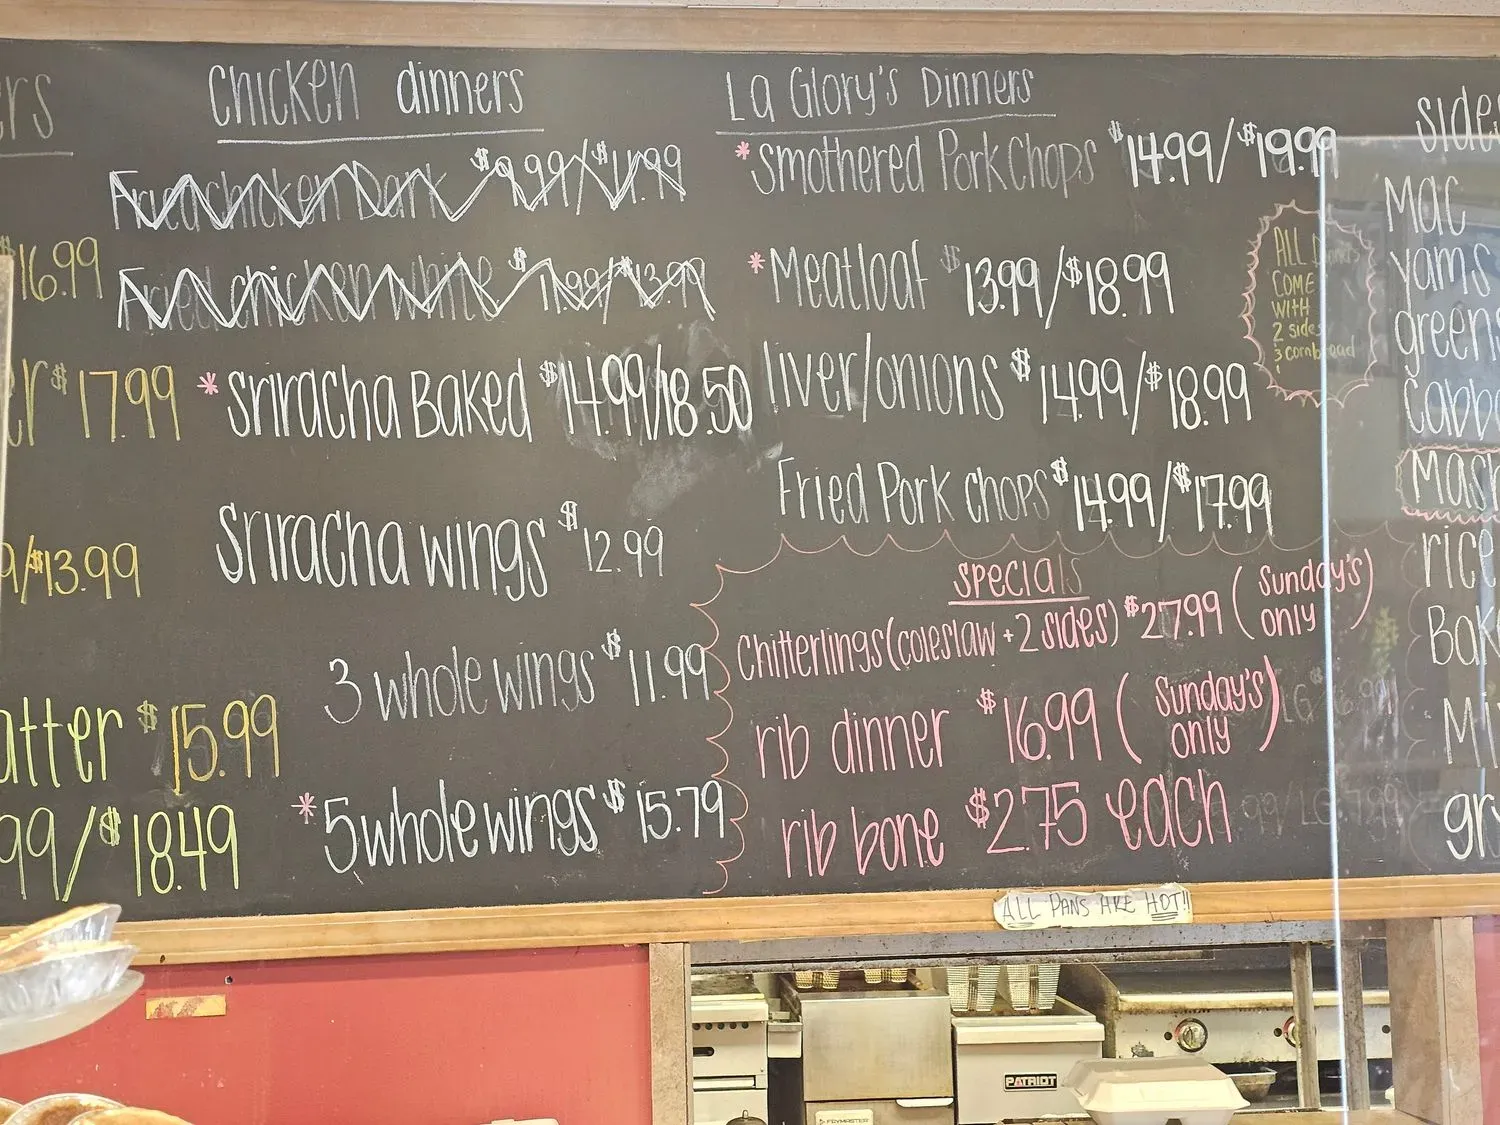 ers
$16.99
er $17.99
9/$13.99
atter $15.99
99/$18.49
Chicken dinners
Fried chicken Dark $9.99/$11.99
Fried chicken white $11.99/$13.99
*Sriracha Baked $14.99/18.50
Sriracha wings $12.99
3 whole wings $11.99
*5 whole wings $15.79
La Glory's Dinners
*Smothered Pork Chops $14.99/$19.99
*Meatloaf $13.99/$18.99
liver/onions $14.99/$18.99
Fried Pork chops $14.99/$17.99
ALL Dinners
COME
WITH
2 sides
3 cornbread
Specials
Chitterlings (coleslaw + 2 sides) $27.99 (Sunday's only)
rib dinner $16.99 (Sunday's only)
rib bone $2.75 each
sides
Mac
yams
greens
cabb
Mash
rice
Bak
Mi
gr
ALL PANS ARE HOT!!
PATRIOT
FRYMASTER